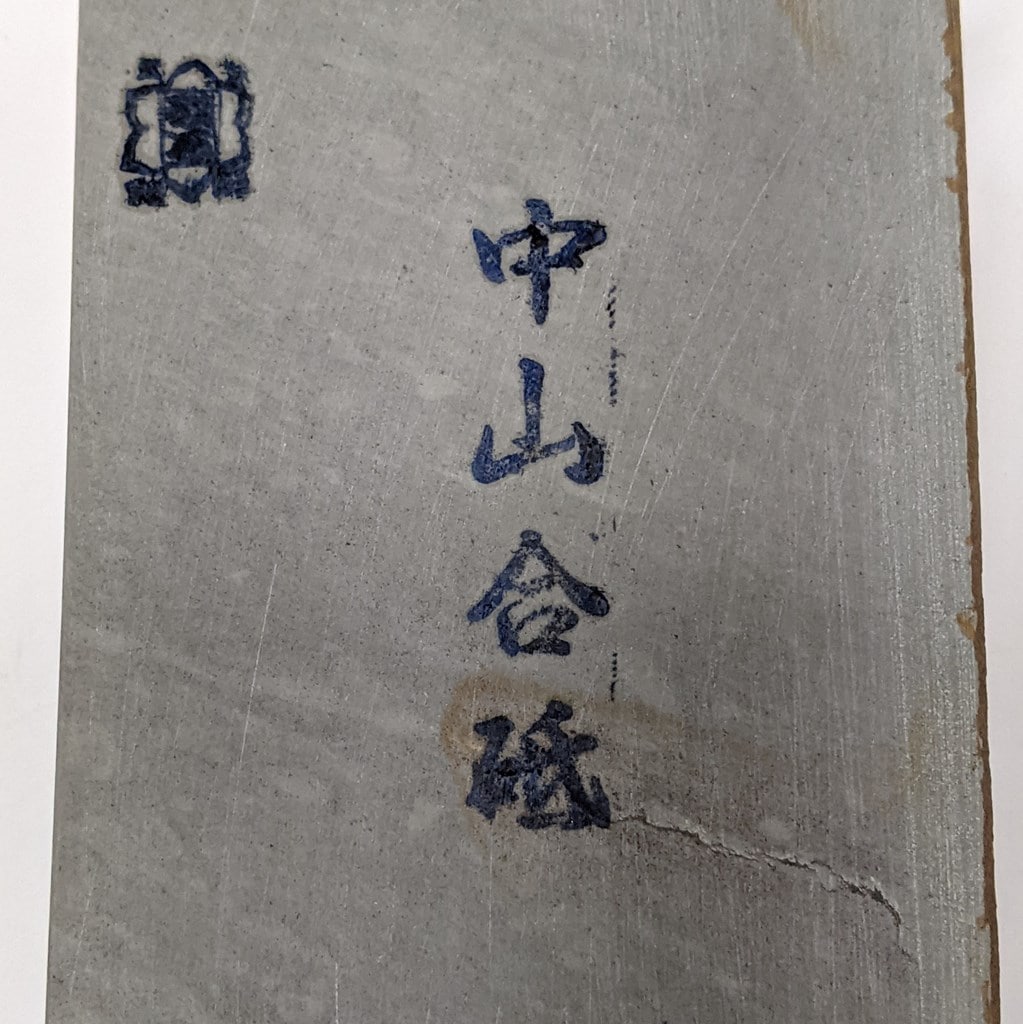 中山合砥